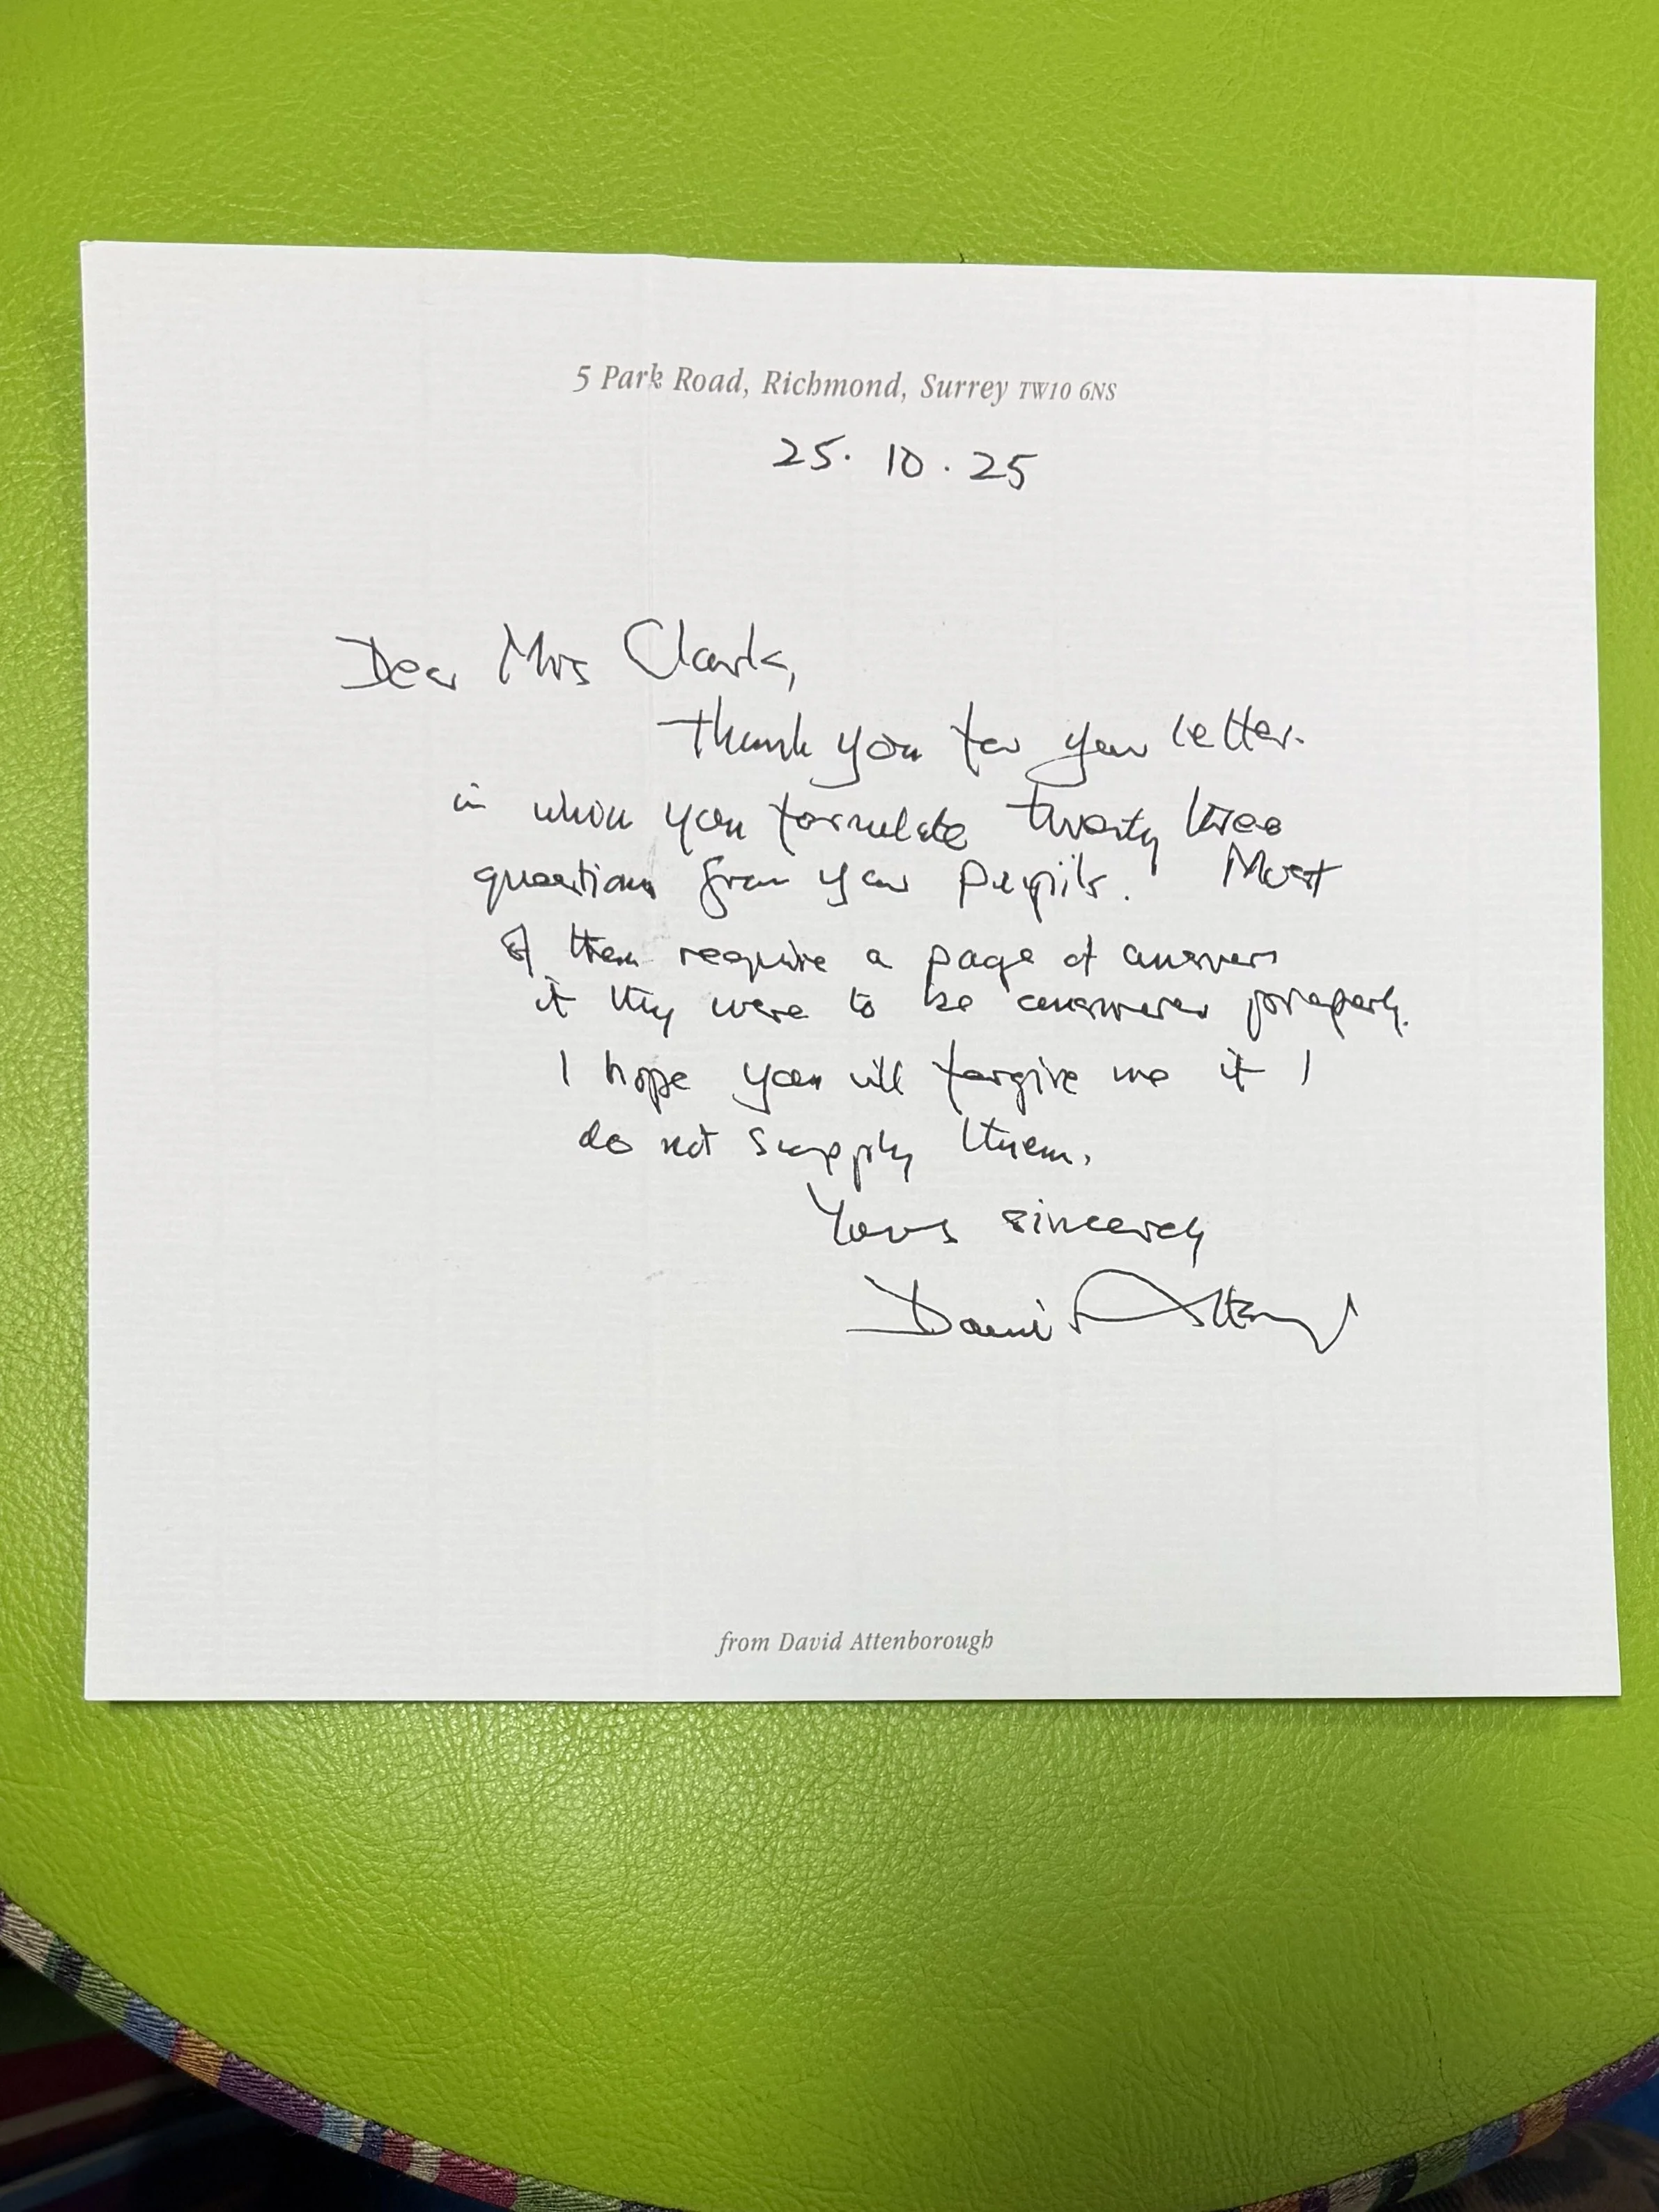 5 Park Road, Richmond, Surrey TW10 6NS
25. 10. 25
Dear Mrs Clark,
Thank you for your letter.
in which you formulate twenty three
questions from your pupils. Most
of them require a page of answers
if they were to be answered properly.
I hope you will forgive me if I
do not supply them.
Yours sincerely
David Attenborough
from David Attenborough